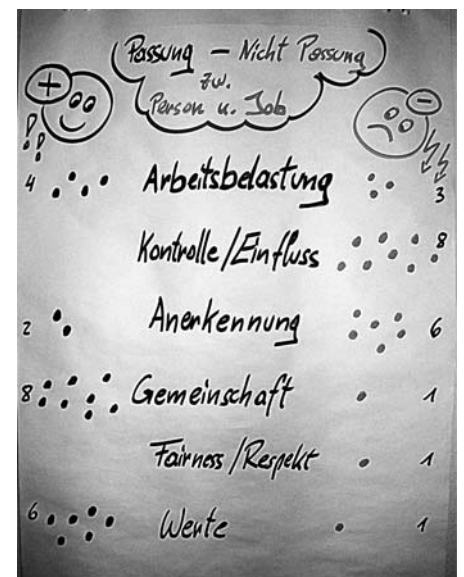 Passung – Nicht Passung
zw.
Person u. Job
4 Arbeitsbelastung 3
Kontrolle/Einfluss 8
2 Anerkennung 6
8 Gemeinschaft 1
Fairness/Respekt 1
6 Werte 1